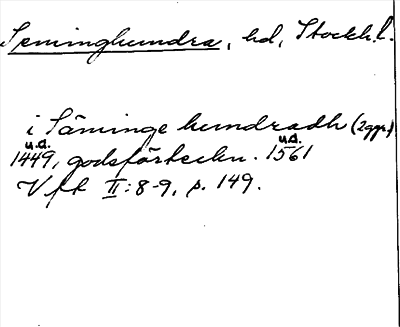 Seminghundra, hd, Stockh.l.
i Säminge hundradh (2ggr)
u.a. u.a.
1449, godsförteckn. 1561
Vfk II:8-9, p. 149.